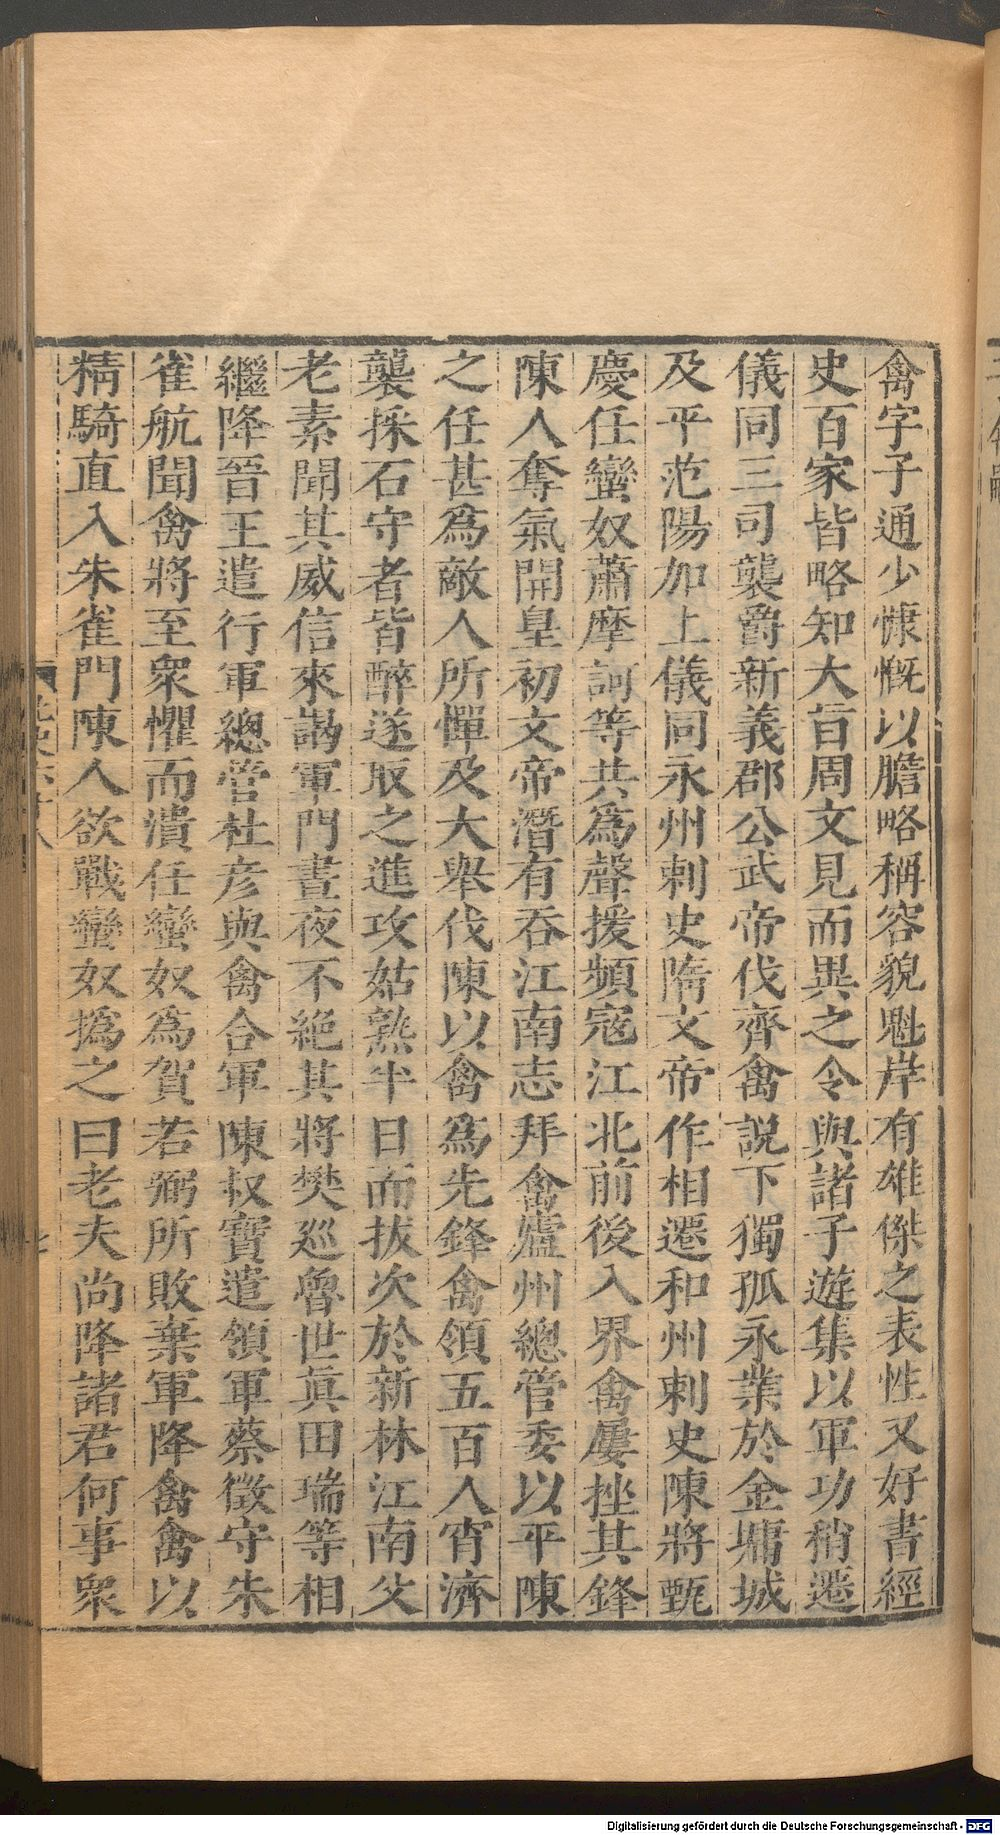 禽字子通少慷慨以膽略稱容貌魁岸有雄傑之表性又好書經
史百家皆略知大旨周文見而異之令與諸子遊集以軍功稍遷
儀同三司襲爵新義郡公武帝伐齊禽説下獨孤永業於金墉城
及平范陽加上儀同永州刺史隋文帝作相遷和州刺史陳將甄
慶任蠻奴蕭摩訶等共爲聲援頻寇江北前後入界禽屢挫其鋒
陳人奪氣開皇初文帝潛有吞江南志拜禽廬州總管委以平陳
之任甚爲敵人所憚及大舉伐陳以禽爲先鋒禽領五百人宵濟
襲採石守者皆醉遂取之進攻姑熟半日而拔次於新林江南父
老素聞其威信來謁軍門晝夜不絶其將樊巡魯世眞田瑞等相
繼降晉王遣行軍總管杜彦與禽合軍陳叔寶遣領軍蔡徵守朱
雀航聞禽將至衆懼而潰任蠻奴爲賀若弼所敗棄軍降禽禽以
精騎直入朱雀門陳人欲戰蠻奴撝之曰老夫尚降諸君何事衆
Digitalisierung gefördert durch die Deutsche Forschungsgemeinschaft - DFG